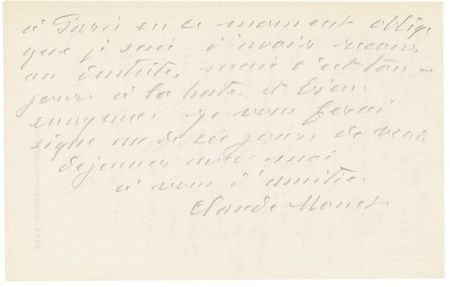 à Paris en ce moment obligé
que je suis d'avoir recours
au dentiste, mais c'est tou-
jours à la hate et bien
ennuyeux je vous ferai
signe un de ces jours de venir
dejeuner avec moi
à vous d'amitié
Claude Monet